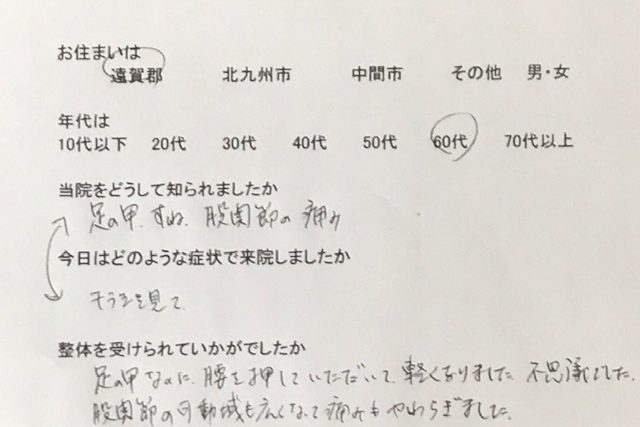 お住まいは
遠賀郡 北九州市 中間市 その他 男・女
年代は
10代以下 20代 30代 40代 50代 60代 70代以上
当院をどうして知られましたか
足の甲、すね、股関節の痛み
今日はどのような症状で来院しましたか
チラシを見て
整体を受けられていかがでしたか
足の甲なのに、腰を押していただいて、軽くなりました 不思議でした。
股関節の可動域も広くなって痛みもやわらぎました。